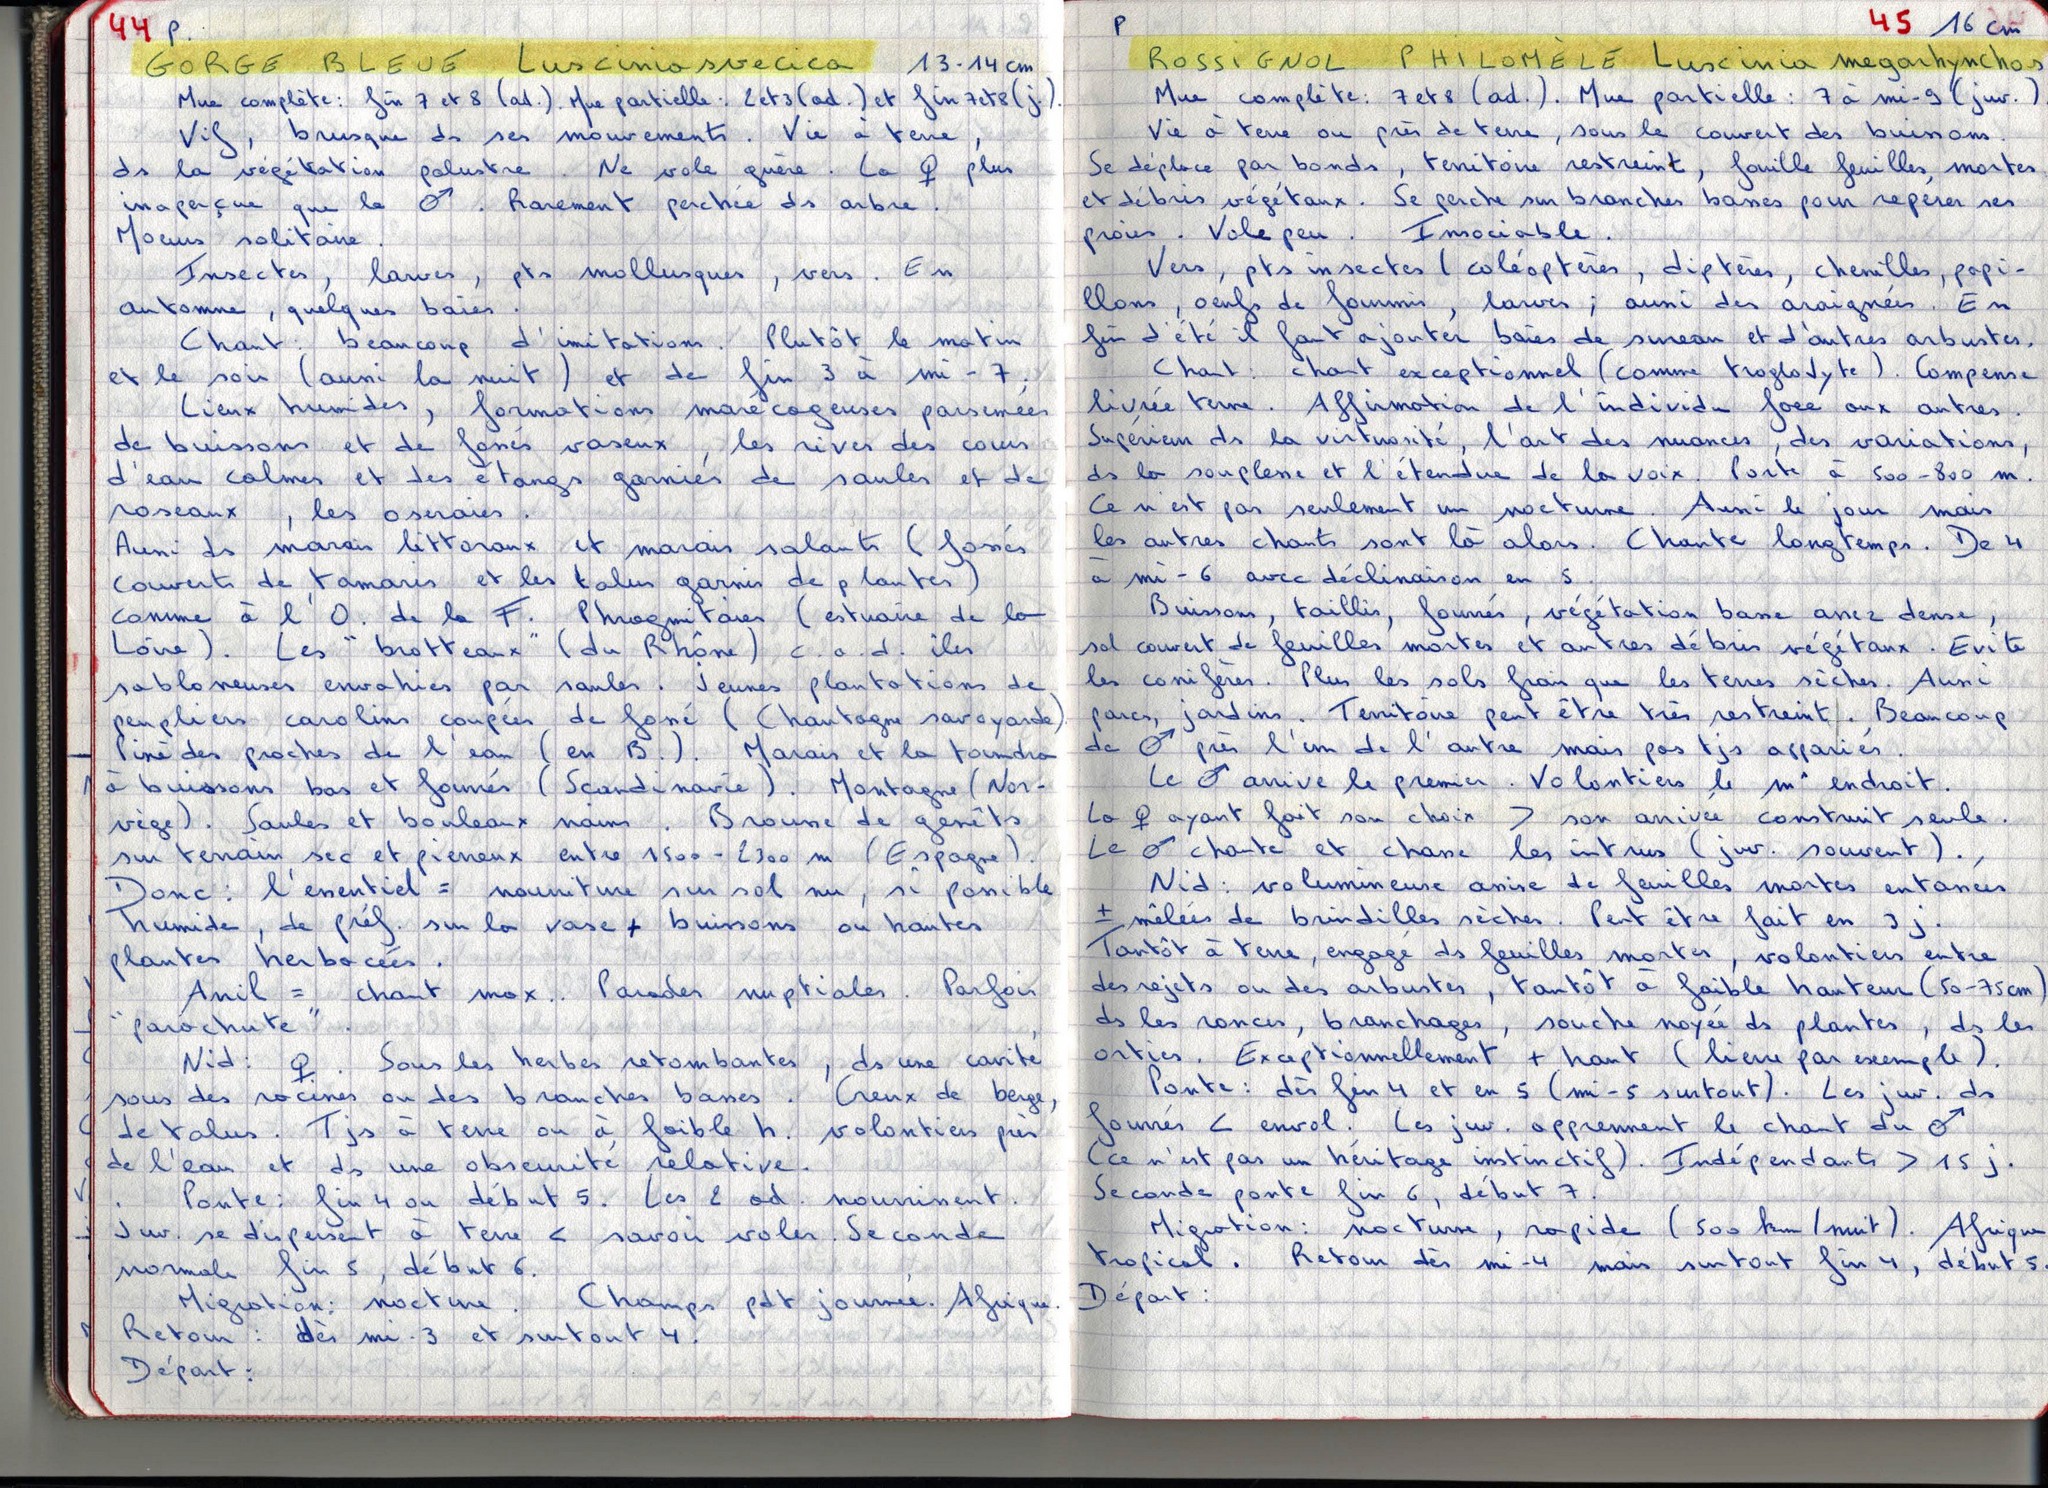 44 p.
GORGE BLEUE Luscinia svecica 13-14 cm
Mue complète: fin 7 et 8 (ad.). Mue partielle: 2 et 3 (ad.) et fin 7 et 8 (j.).
Vif, brusque ds ses mouvements. Vie à terre,
ds la végétation palustre. Ne vole guère. La ♀ plus
inaperçue que le ♂. Rarement perchée ds arbre.
Moeurs solitaire.
Insectes, larves, pts mollusques, vers. En
automne, quelques baies.
Chant: beaucoup d'imitations. Plutôt le matin
et le soir (aussi la nuit) et de fin 3 à mi-7.
Lieux humides, formations marécageuses parsemées
de buissons et de fossés vaseux, les rives des cours
d'eau calmes et des étangs garnies de saules et de
roseaux, les oseraies.
Aussi ds marais littoraux et marais salants (fossés
couverts de tamaris et les talus garnis de plantes)
comme à l'O. de la F. Phragmitaies (estuaire de la
Loire). Les "brotteaux" (du Rhône) c.a.d. îles
sabloneuses envahies par saules. Jeunes plantations de
peupliers carolins coupées de fossé (Chautagne savoyarde)
Pinèdes proches de l'eau (en B.). Marais et la toundra
à buissons bas et fourrés (Scandinavie). Montagne (Nor-
vège). Saules et bouleaux nains. Brousse de genêts
sur terrain sec et pierreux entre 1500-2300 m (Espagne).
Donc: l'essentiel = nourriture sur sol nu, si possible
humide, de préf. sur la vase + buissons ou hautes
plantes herbacées.
Avril = chant max.. Parades nuptiales. Parfois
"parachute".
Nid: ♀. Sous les herbes retombantes, ds une cavité
sous des racines ou des branches basses. Creux de berge,
de talus. Tjs à terre ou à faible h. volontiers près
de l'eau et ds une obscurité relative.
Ponte: fin 4 ou début 5. Les 2 ad. nourrissent.
Juv. se dispersent à terre < savoir voler. Seconde
normale fin 5, début 6.
Migration: nocturne. Champs pdt journée. Afrique.
Retour: dès mi-3 et surtout 4.
Départ:
P 45 16 cm
ROSSIGNOL PHILOMÈLE Luscinia megarhynchos
Mue complète: 7 et 8 (ad.). Mue partielle: 7 à mi-9 (juv.).
Vie à terre ou près de terre, sous le couvert des buissons.
Se déplace par bonds, territoire restreint, fouille feuilles, mortes
et débris végétaux. Se perche sur branches basses pour repérer ses
proies. Vole peu. Insociable.
Vers, pts insectes (coléoptères, diptères, chenilles, papi-
llons, oeufs de fourmis, larves; aussi des araignées. En
fin d'été il faut ajouter baies de sureau et d'autres arbustes.
Chant: chant exceptionnel (comme troglodyte). Compense
livrée terne. Affirmation de l'individu face aux autres.
Supérieur ds la virtuosité, l'art des nuances, des variations,
ds la souplesse et l'étendue de la voix. Porte à 500-800 m.
Ce n'est pas seulement un nocturne. Aussi le jour mais
les autres chants sont là alors. Chante longtemps. De 4
à mi-6 avec déclinaison en 5.
Buissons, taillis, fourrés, végétation basse assez dense,
sol couvert de feuilles mortes et autres débris végétaux. Evite
les conifères. Plus les sols frais que les terres sèches. Aussi
parcs, jardins. Territoire peut être très restreint. Beaucoup
de ♂ près l'un de l'autre mais pas tjs appariés.
Le ♂ arrive le premier. Volontiers le m^ endroit.
La ♀ ayant fait son choix > son arrivée construit seule.
Le ♂ chante et chasse les intrus (juv. souvent).
Nid: volumineuse assise de feuilles mortes entassées
± mêlées de brindilles sèches. Peut être fait en 3 j.
Tantôt à terre, engagé ds feuilles mortes, volontiers entre
des rejets ou des arbustes, tantôt à faible hauteur (50-75 cm)
ds les ronces, branchages, souche noyée ds plantes, ds les
orties. Exceptionnellement + haut (lierre par exemple).
Ponte: dès fin 4 et en 5 (mi-5 surtout). Les juv. ds
fourrés < envol. Les juv. apprennent le chant du ♂
(ce n'est pas un héritage instinctif). Indépendants > 15 j.
Seconde ponte fin 6, début 7.
Migration: nocturne, rapide (500 km/nuit). Afrique
tropical. Retour dès mi-4 mais surtout fin 4, début 5.
Départ: